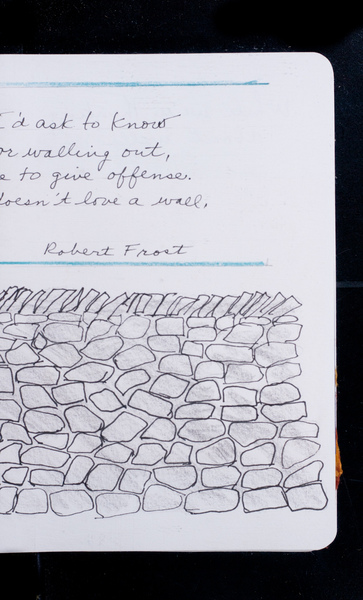 I'd ask to know
or walling out,
to give offense.
doesn't love a wall,
Robert Frost